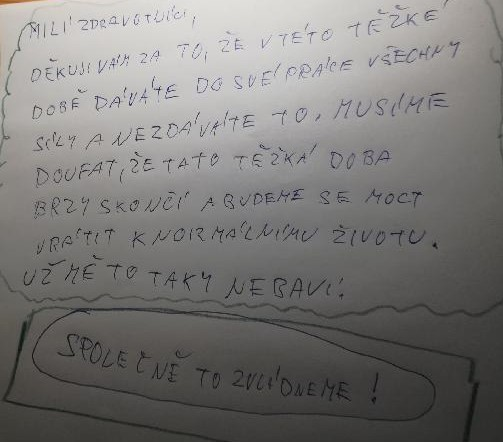 MILÍ ZDRAVOTNÍCI,
DĚKUJI VÁM ZA TO, ŽE V TÉTO TĚŽKÉ
DOBĚ DÁVÁTE DO SVÉ PRÁCE VŠECHNY
SÍLY A NEZDÁVÁTE TO. MUSÍME
DOUFAT, ŽE TATO TĚŽKÁ DOBA
BRZY SKONČÍ A BUDEME SE MOCT
VRÁTIT K NORMÁLNÍMU ŽIVOTU.
UŽ MĚ TO TAKY NEBAVÍ.
SPOLEČNĚ TO ZVLÁDNEME!